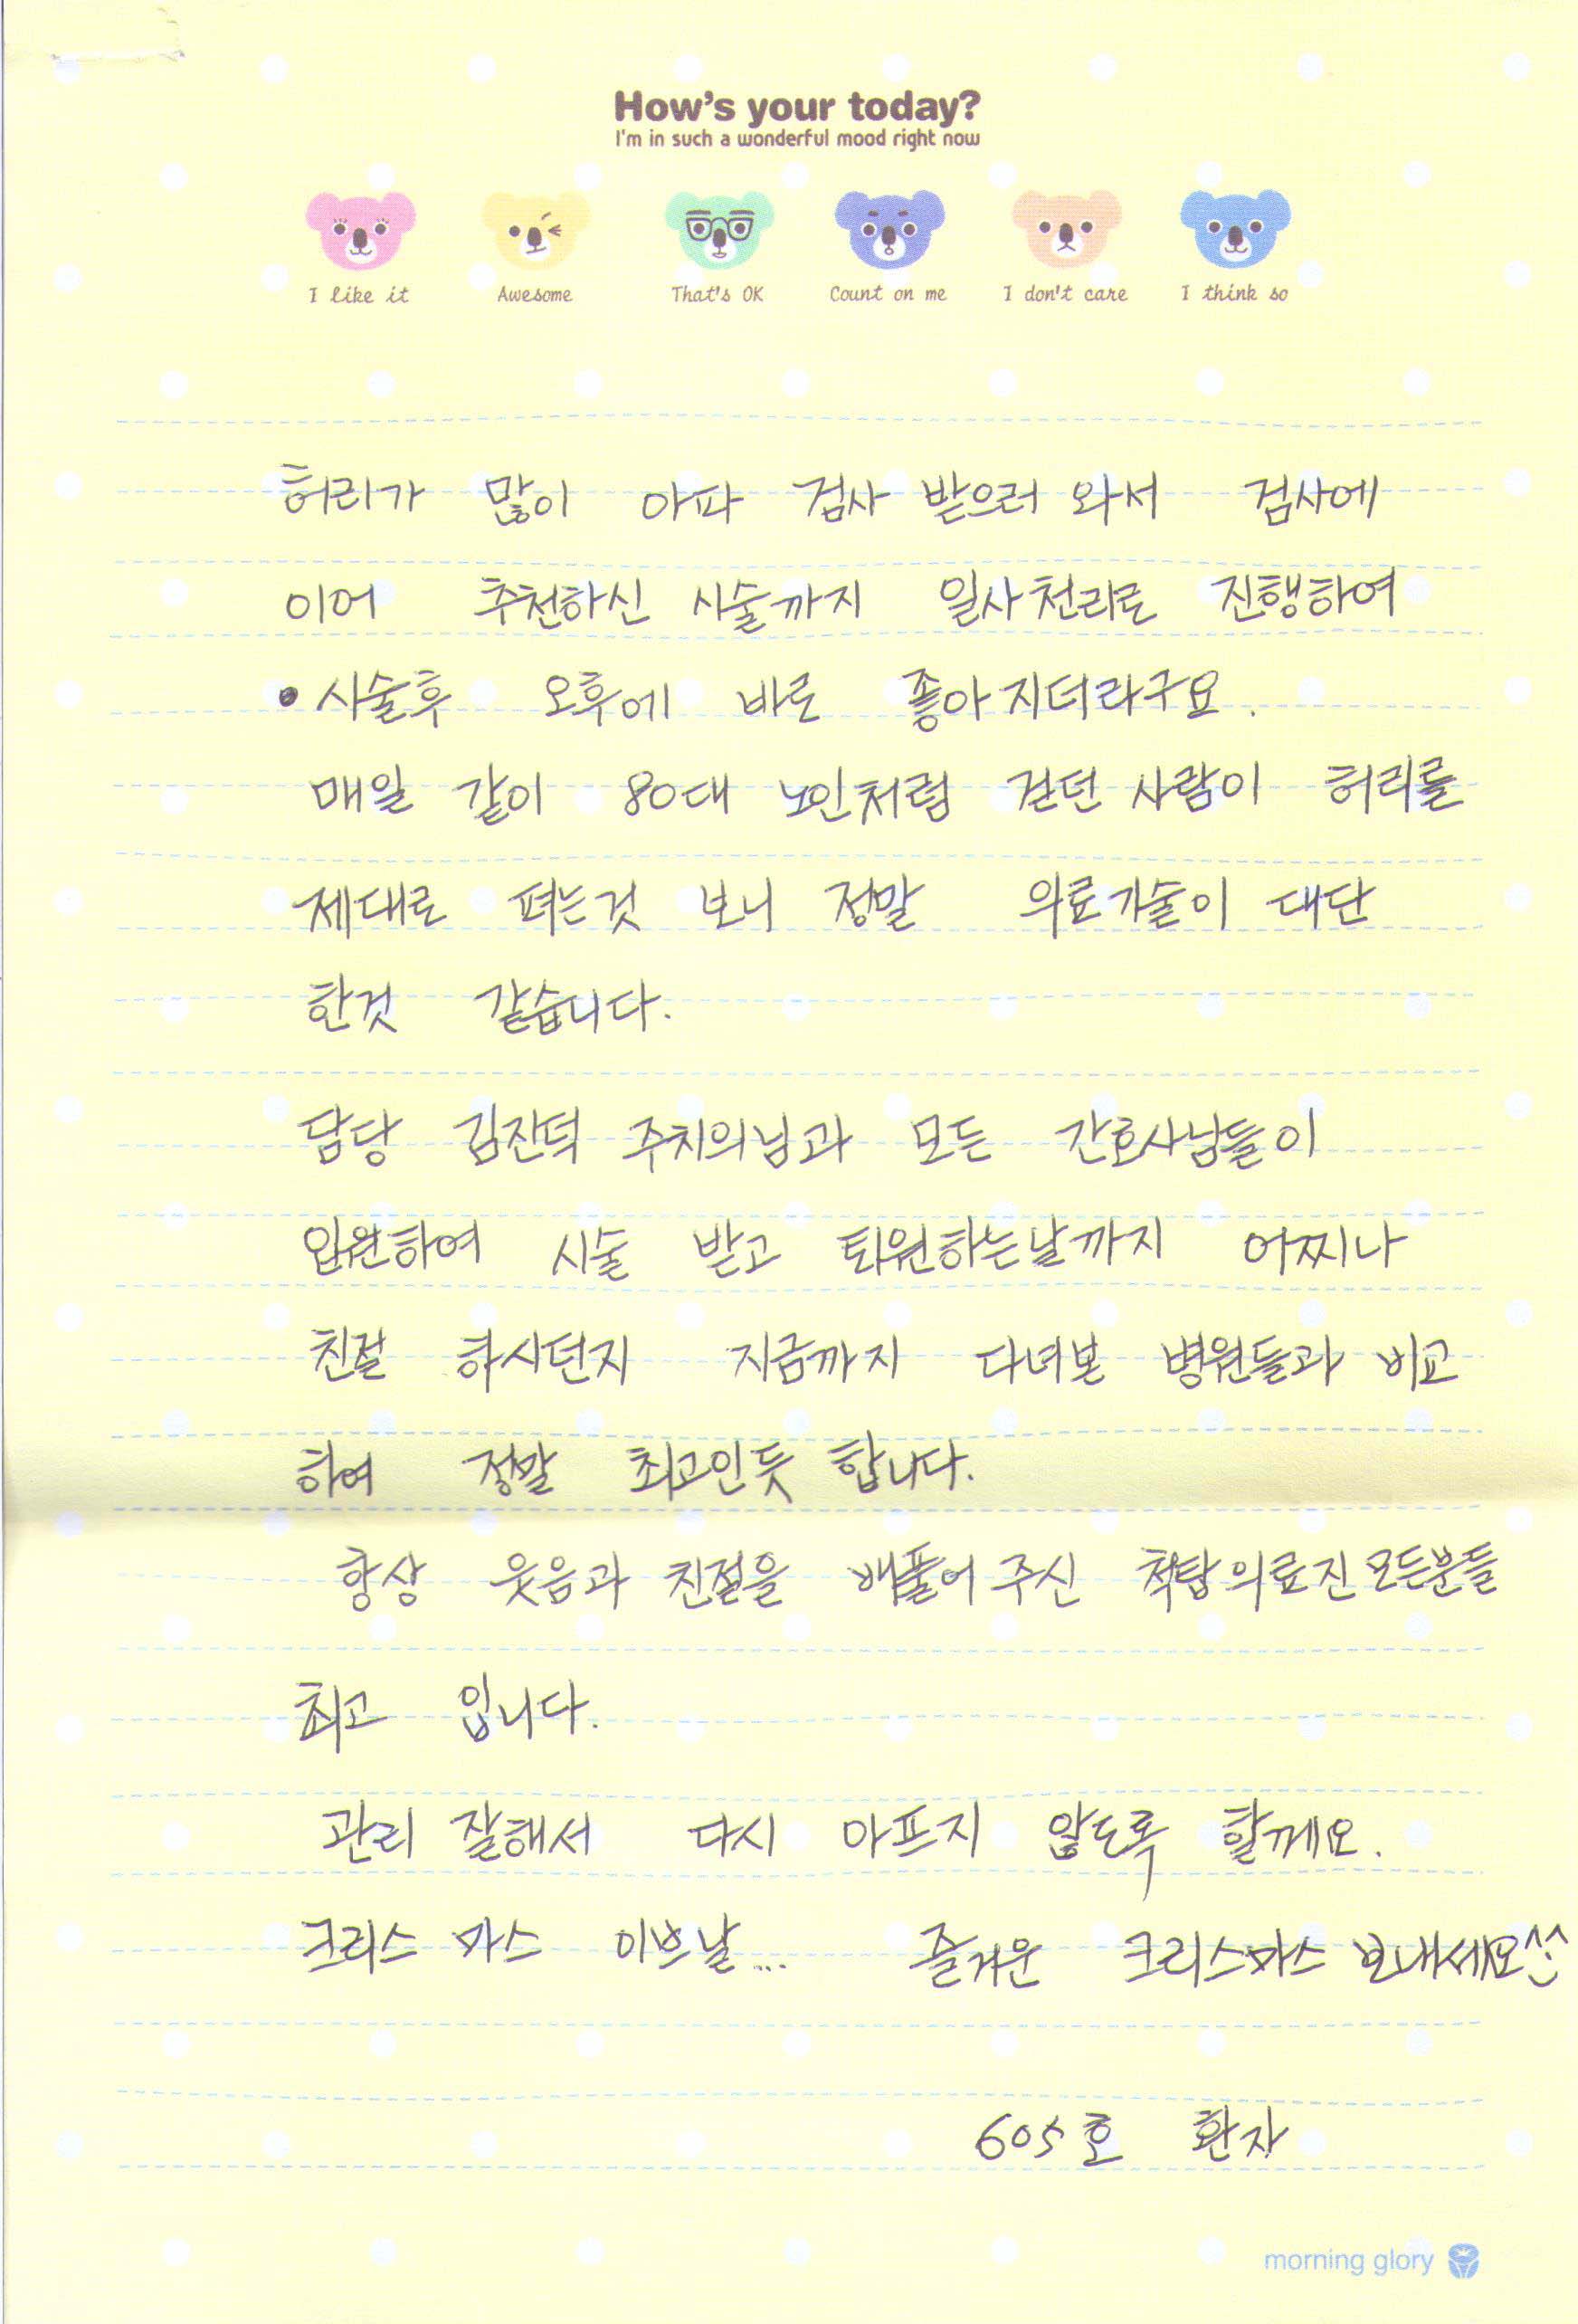 How's your today?
I'm in such a wonderful mood right now
I like it Awesome That's OK Count on me I don't care I think so
허리가 많이 아파 검사 받으러 와서 검사에
이어 추천하신 시술까지 일사천리로 진행하여
• 시술후 오후에 바로 좋아지더라구요.
매일 같이 80대 노인처럼 걷던 사람이 허리를
제대로 펴는것 보니 정말 의료기술이 대단
한것 같습니다.
담당 김진덕 주치의님과 모든 간호사님들이
입원하여 시술 받고 퇴원하는날까지 어찌나
친절 하시던지 지금까지 다녀본 병원들과 비교
하여 정말 최고인듯 합니다.
항상 웃음과 친절을 베풀어 주신 척탑의료진 모든분들
최고 입니다.
관리 잘해서 다시 아프지 않도록 할께요.
크리스 마스 이브날... 즐거운 크리스마스 보내세요^^
605호 환자
morning glory